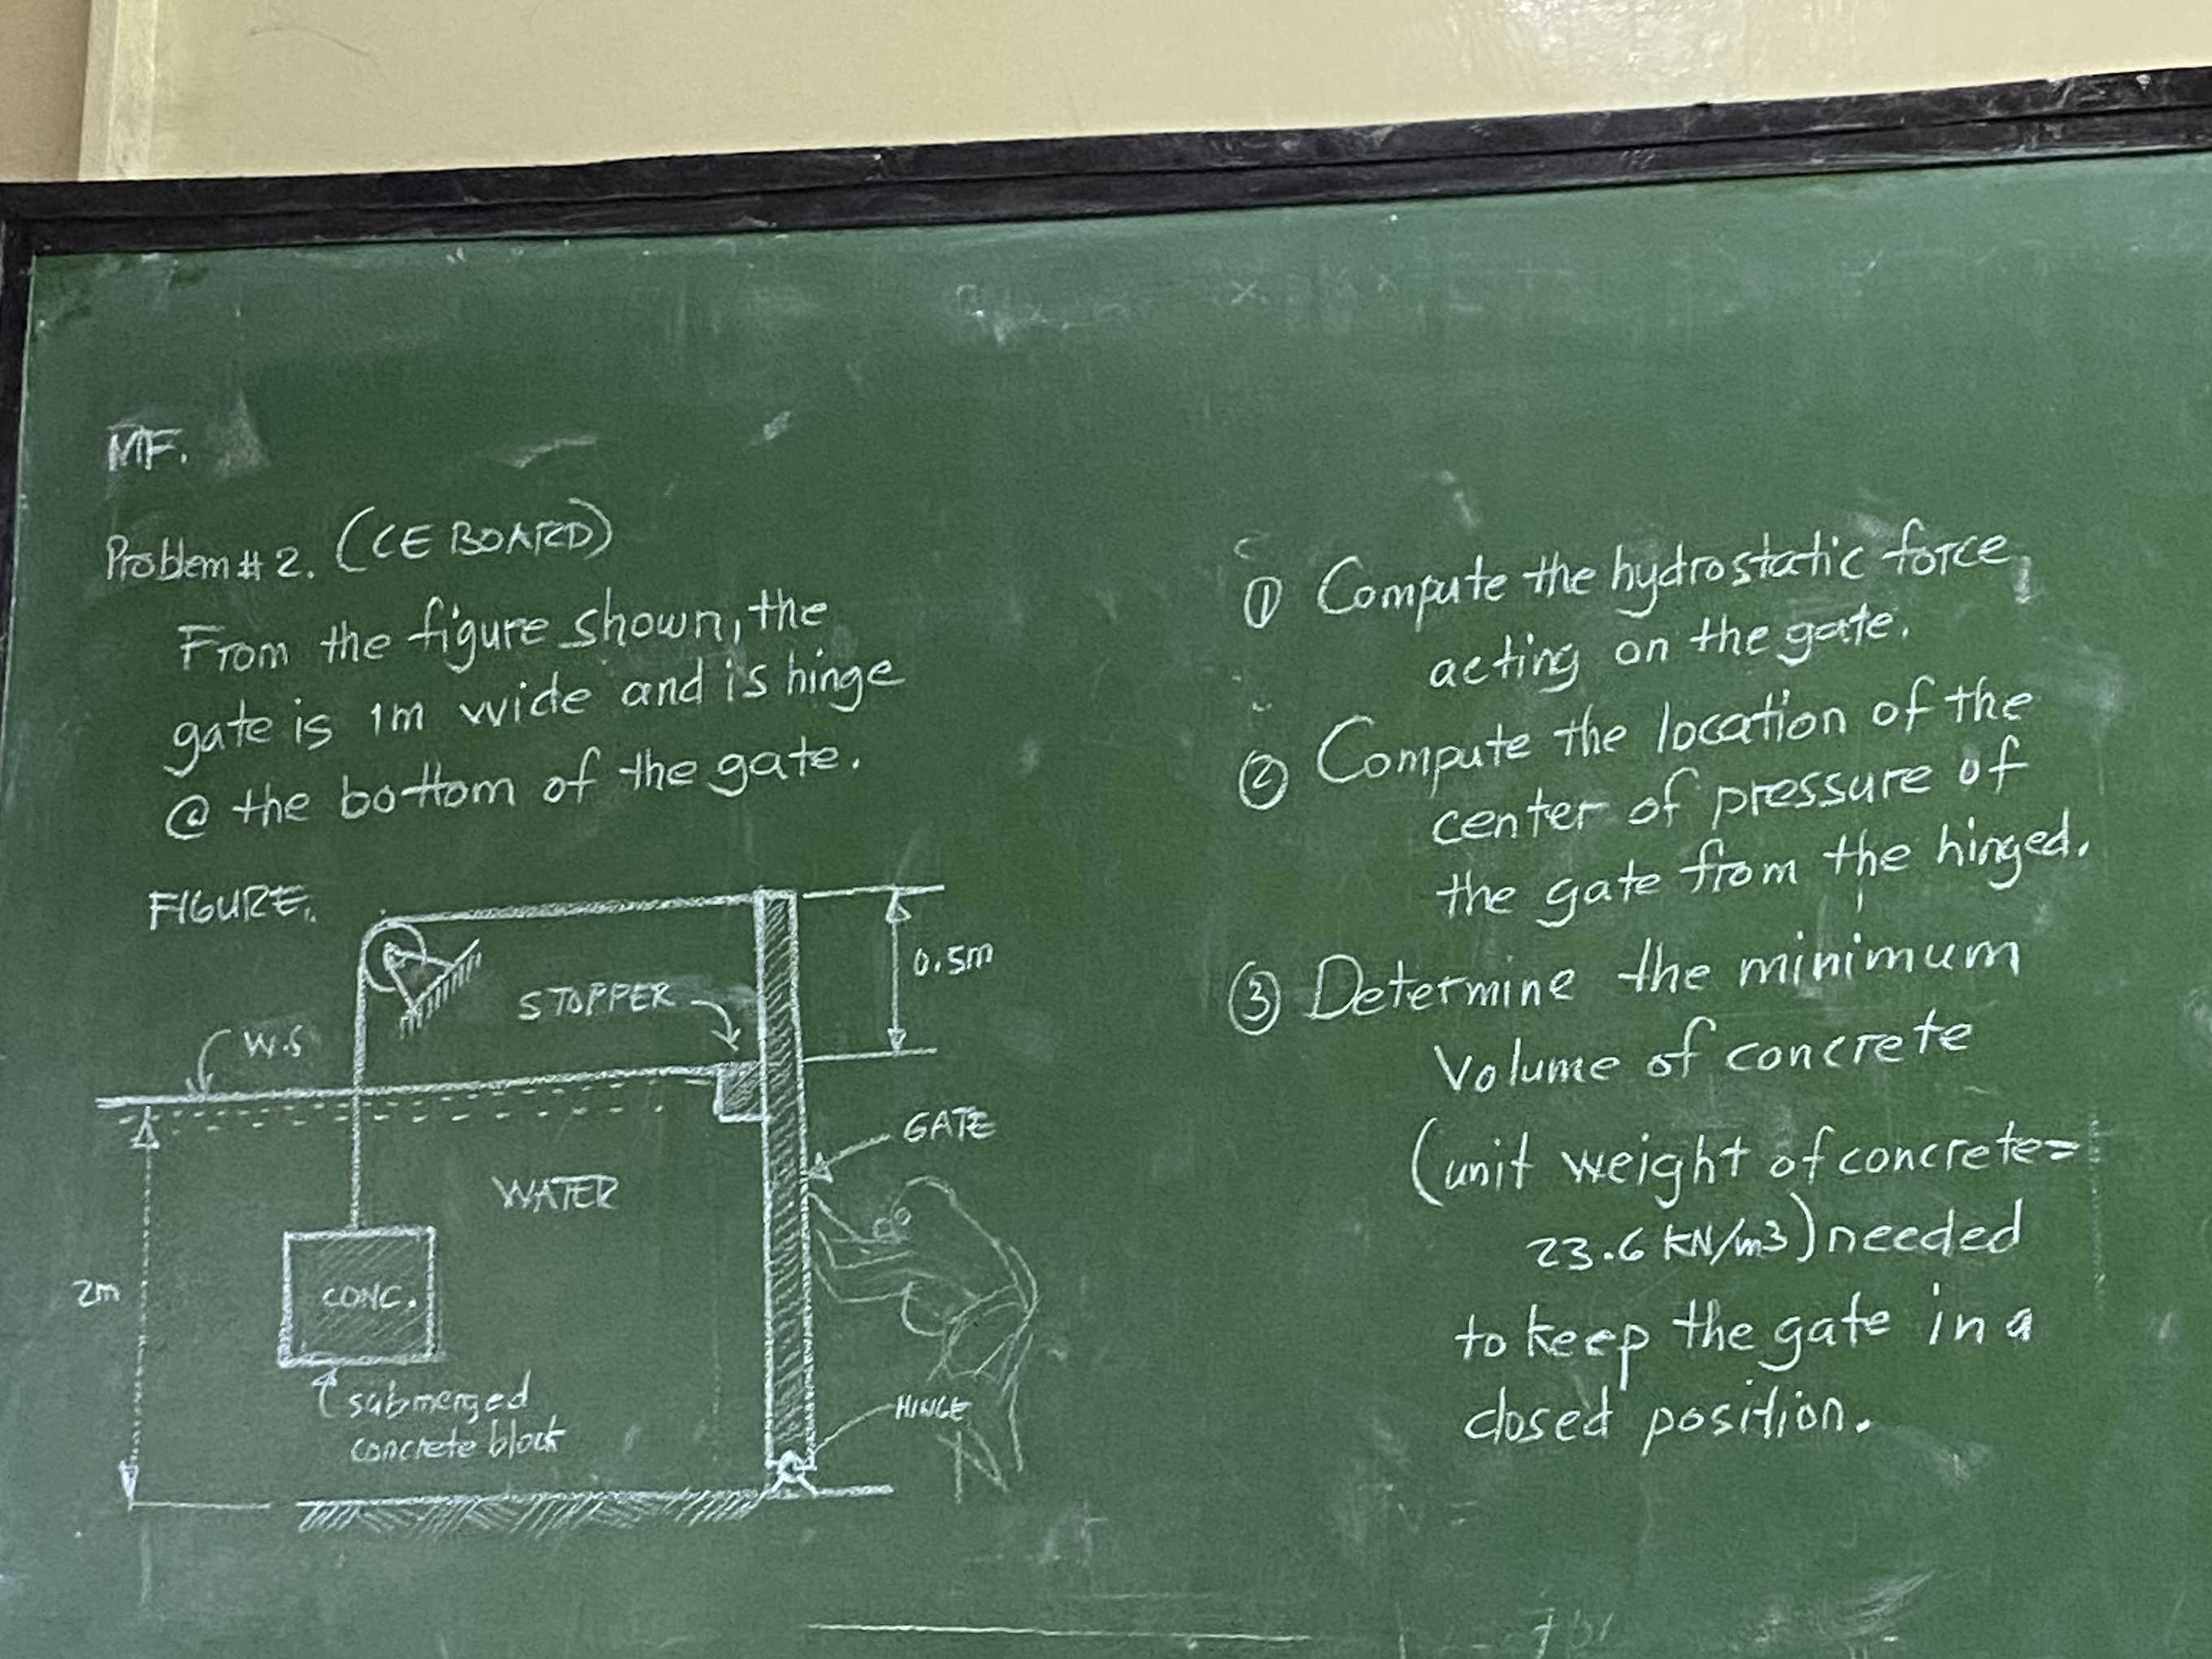 MF.
Problem # 2. (CE BOARD)
From the figure shown, the
gate is 1m wide and is hinge
@ the bottom of the gate.
FIGURE.
STOPPER
0.5m
W.S
GATE
WATER
2m
CONC.
submerged
concrete block
HINGE
① Compute the hydrostatic force
acting on the gate.
② Compute the location of the
center of pressure of
the gate from the hinged.
③ Determine the minimum
Volume of concrete
(unit weight of concrete=
23.6 KN/m3) needed
to keep the gate in a
closed position.